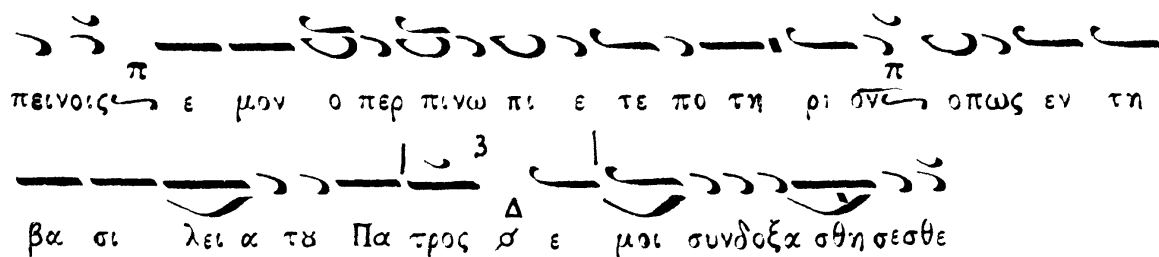 πεινοις π ε μον ο περ πινω πι ε τε πο τη ρι ον π οπως εν τη
βα σι λει α τȣ Πα τρος Δ ε μοι συνδοξα σθη σεσθε